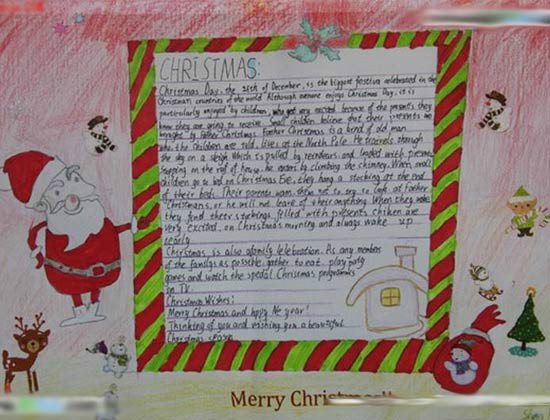 CHRISTMAS:
Christmas Day, the 25th of December, is the biggest festive celebrated in the
Christian countries of the world Although everyone enjoys Christmas Day, it is
particularly enjoyed by children, who get very excited because of the presents they
know they are going to receive. Small children believe that their presents are
brought by Father Christmas. Father Christmas is a kind of old man
who, the children are told, lives at the North Pole. He travels though
the sky on a sleigh which is pulled by reindeers and loaded with presents
Stopping on the roof of house, he enters by climbing the chimney. When small
children go to bed on Christmas Eve, they hang a stocking at the end
of their bed. Their parents warn them not to try to look at father
Christmas, or he will not leave of them anything. When they wake
they find their stockings filled with presents. are
very excited, on Christmas morning and always wake up
early
Christmas is also a family celebration. As any members
of the family as possible, gather to eat, play party
games and watch the special Christmas programmes
in TV.
Christmas Wishes:
Merry Christmas and happy year!
Thinking of you and wishing you a beautiful
Christmas
Merry Christmas!!